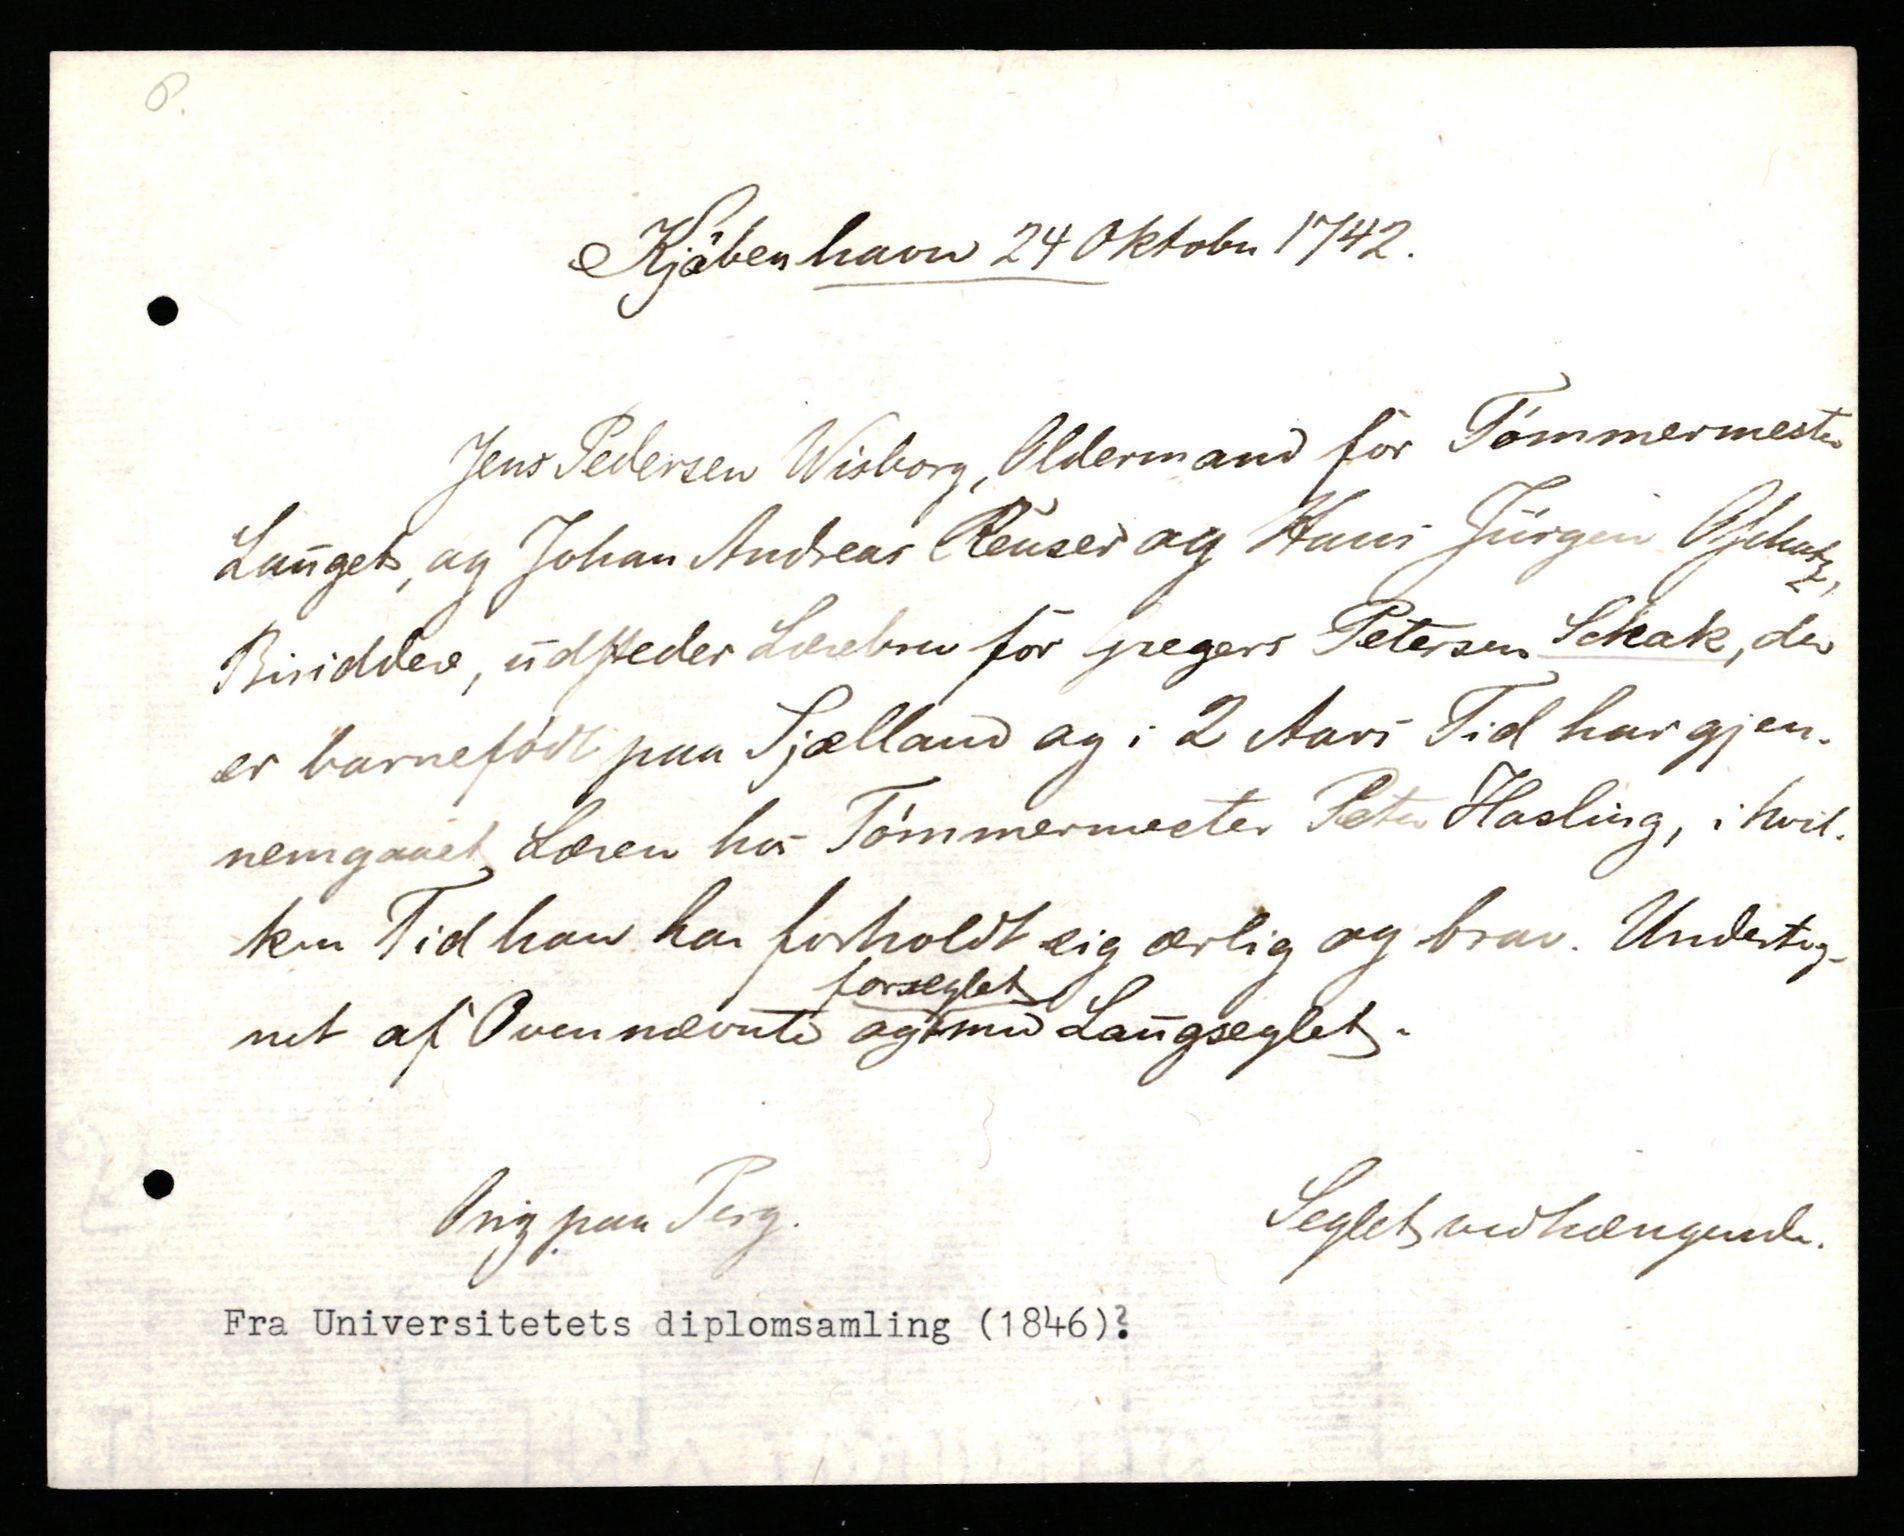 6.
Kjøbenhavn 24 Oktober 1742.
Jens Pedersen Wisborg, Oldermand for Tömmermester
Lauget, og Johan Andreas Reuser og Hans Jürgen
Bisiddere, udsteder Lærebrev for Gregers Petersen Schak, der
er barnefödt paa Sjælland og i 2 Aars Tid har gjen-
nemgaaet Læren hos Tömmermester Peter Hasling, i hvil-
ken Tid han har forholdt sig ærlig og brav. Underteg-
net af Ovennævnte og forseglet med Laugseglet.
Orig paa Perg.
Seglet vedhængende.
Fra Universitetets diplomsamling (1846)?